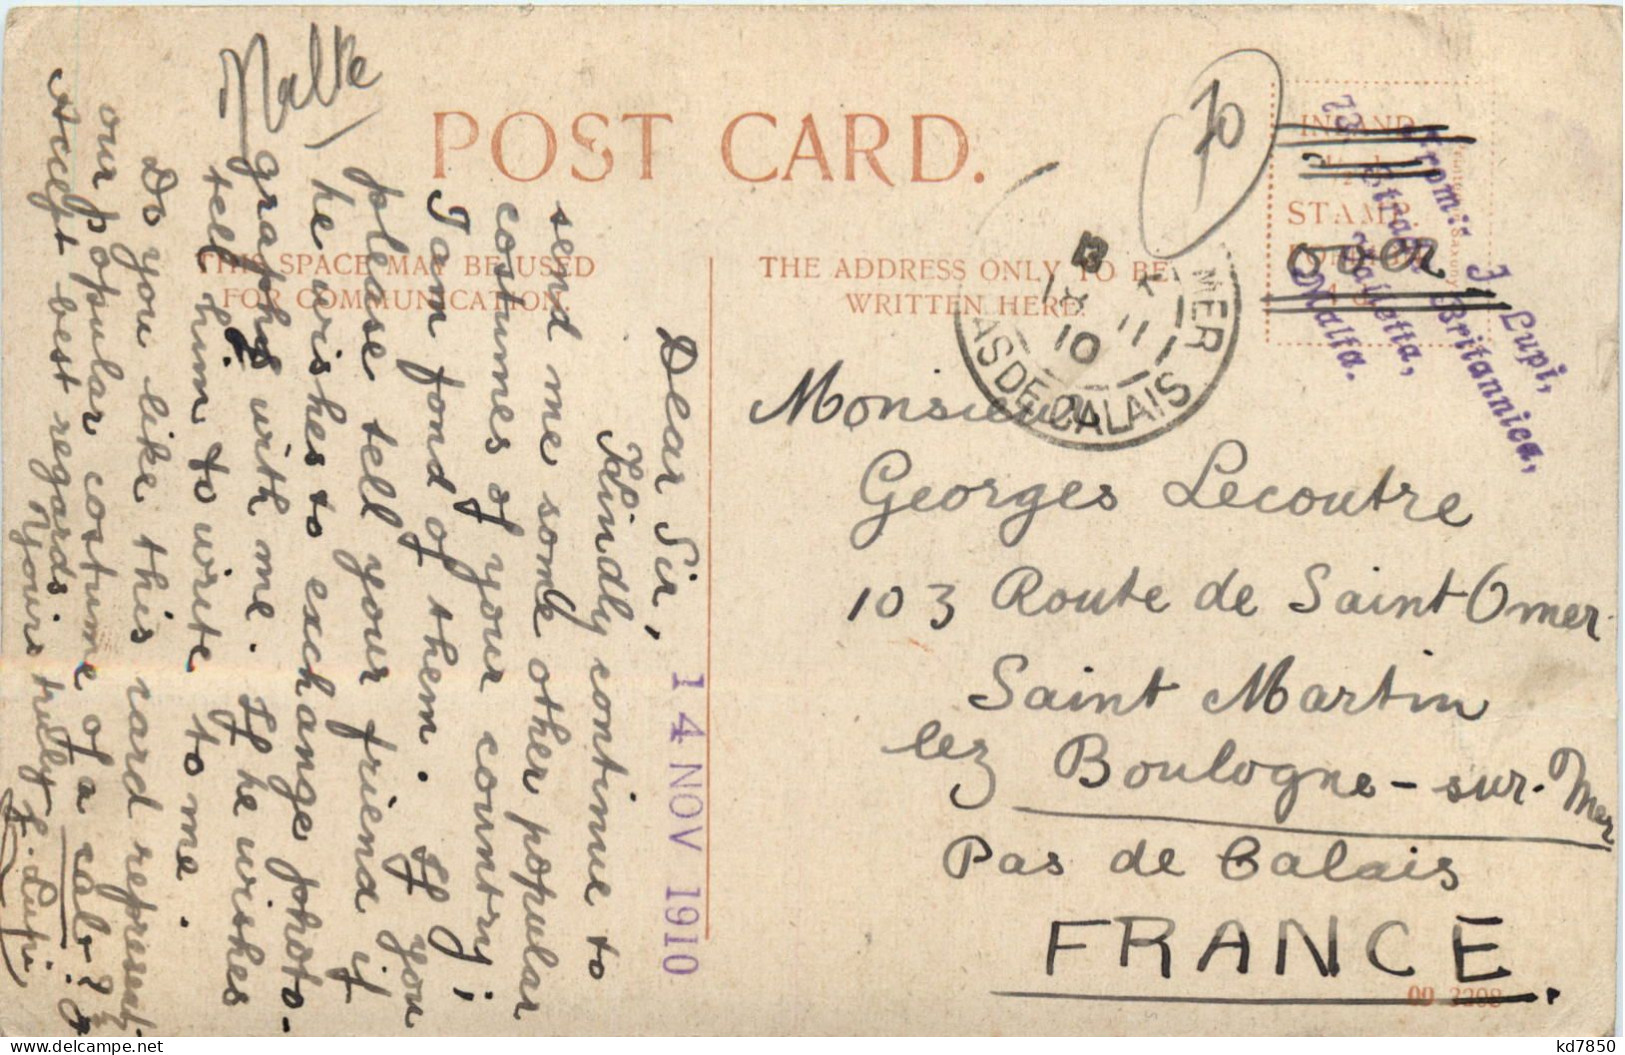 Malte
POST CARD.
THIS SPACE MAY BE USED
FOR COMMUNICATION.
THE ADDRESS ONLY TO BE
WRITTEN HERE.
INLAND
STAMP.
70
MER
18 11
10
PAS DE CALAIS
J. Lupi,
Strada Britannica,
Valletta,
Malta.
14 NOV 1910
Dear Sir,
Kindly continue to
send me some other popular
costumes of your country;
I am fond of them. If you
please tell your friend if
he wishes to exchange photo-
graphs with me. If he wishes
tell him to write to me.
Do you like this card represent.
our popular costume of a
Accept best regards.
Yours truly J. Lupi
Monsieur
Georges Lecoutre
103 Route de Saint Omer
Saint Martin
lez Boulogne-sur-Mer
Pas de Calais
FRANCE.
kd7850